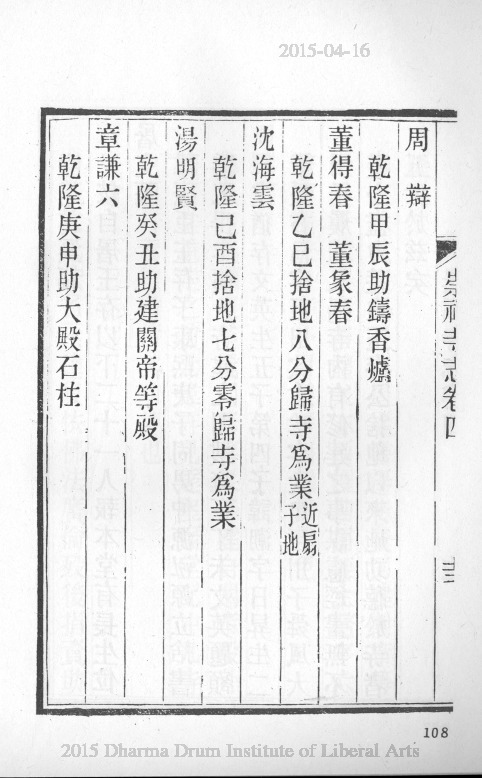 2015-04-16
周辯
乾隆甲辰助鑄香爐
董得春 董象春
乾隆乙巳捨地八分歸寺爲業近扇子地
沈海雲
乾隆己酉捨地七分零歸寺爲業
湯明賢
乾隆癸丑助建關帝等殿
章謙六
乾隆庚申助大殿石柱
崇福寺志卷四
108
2015 Dharma Drum Institute of Liberal Arts